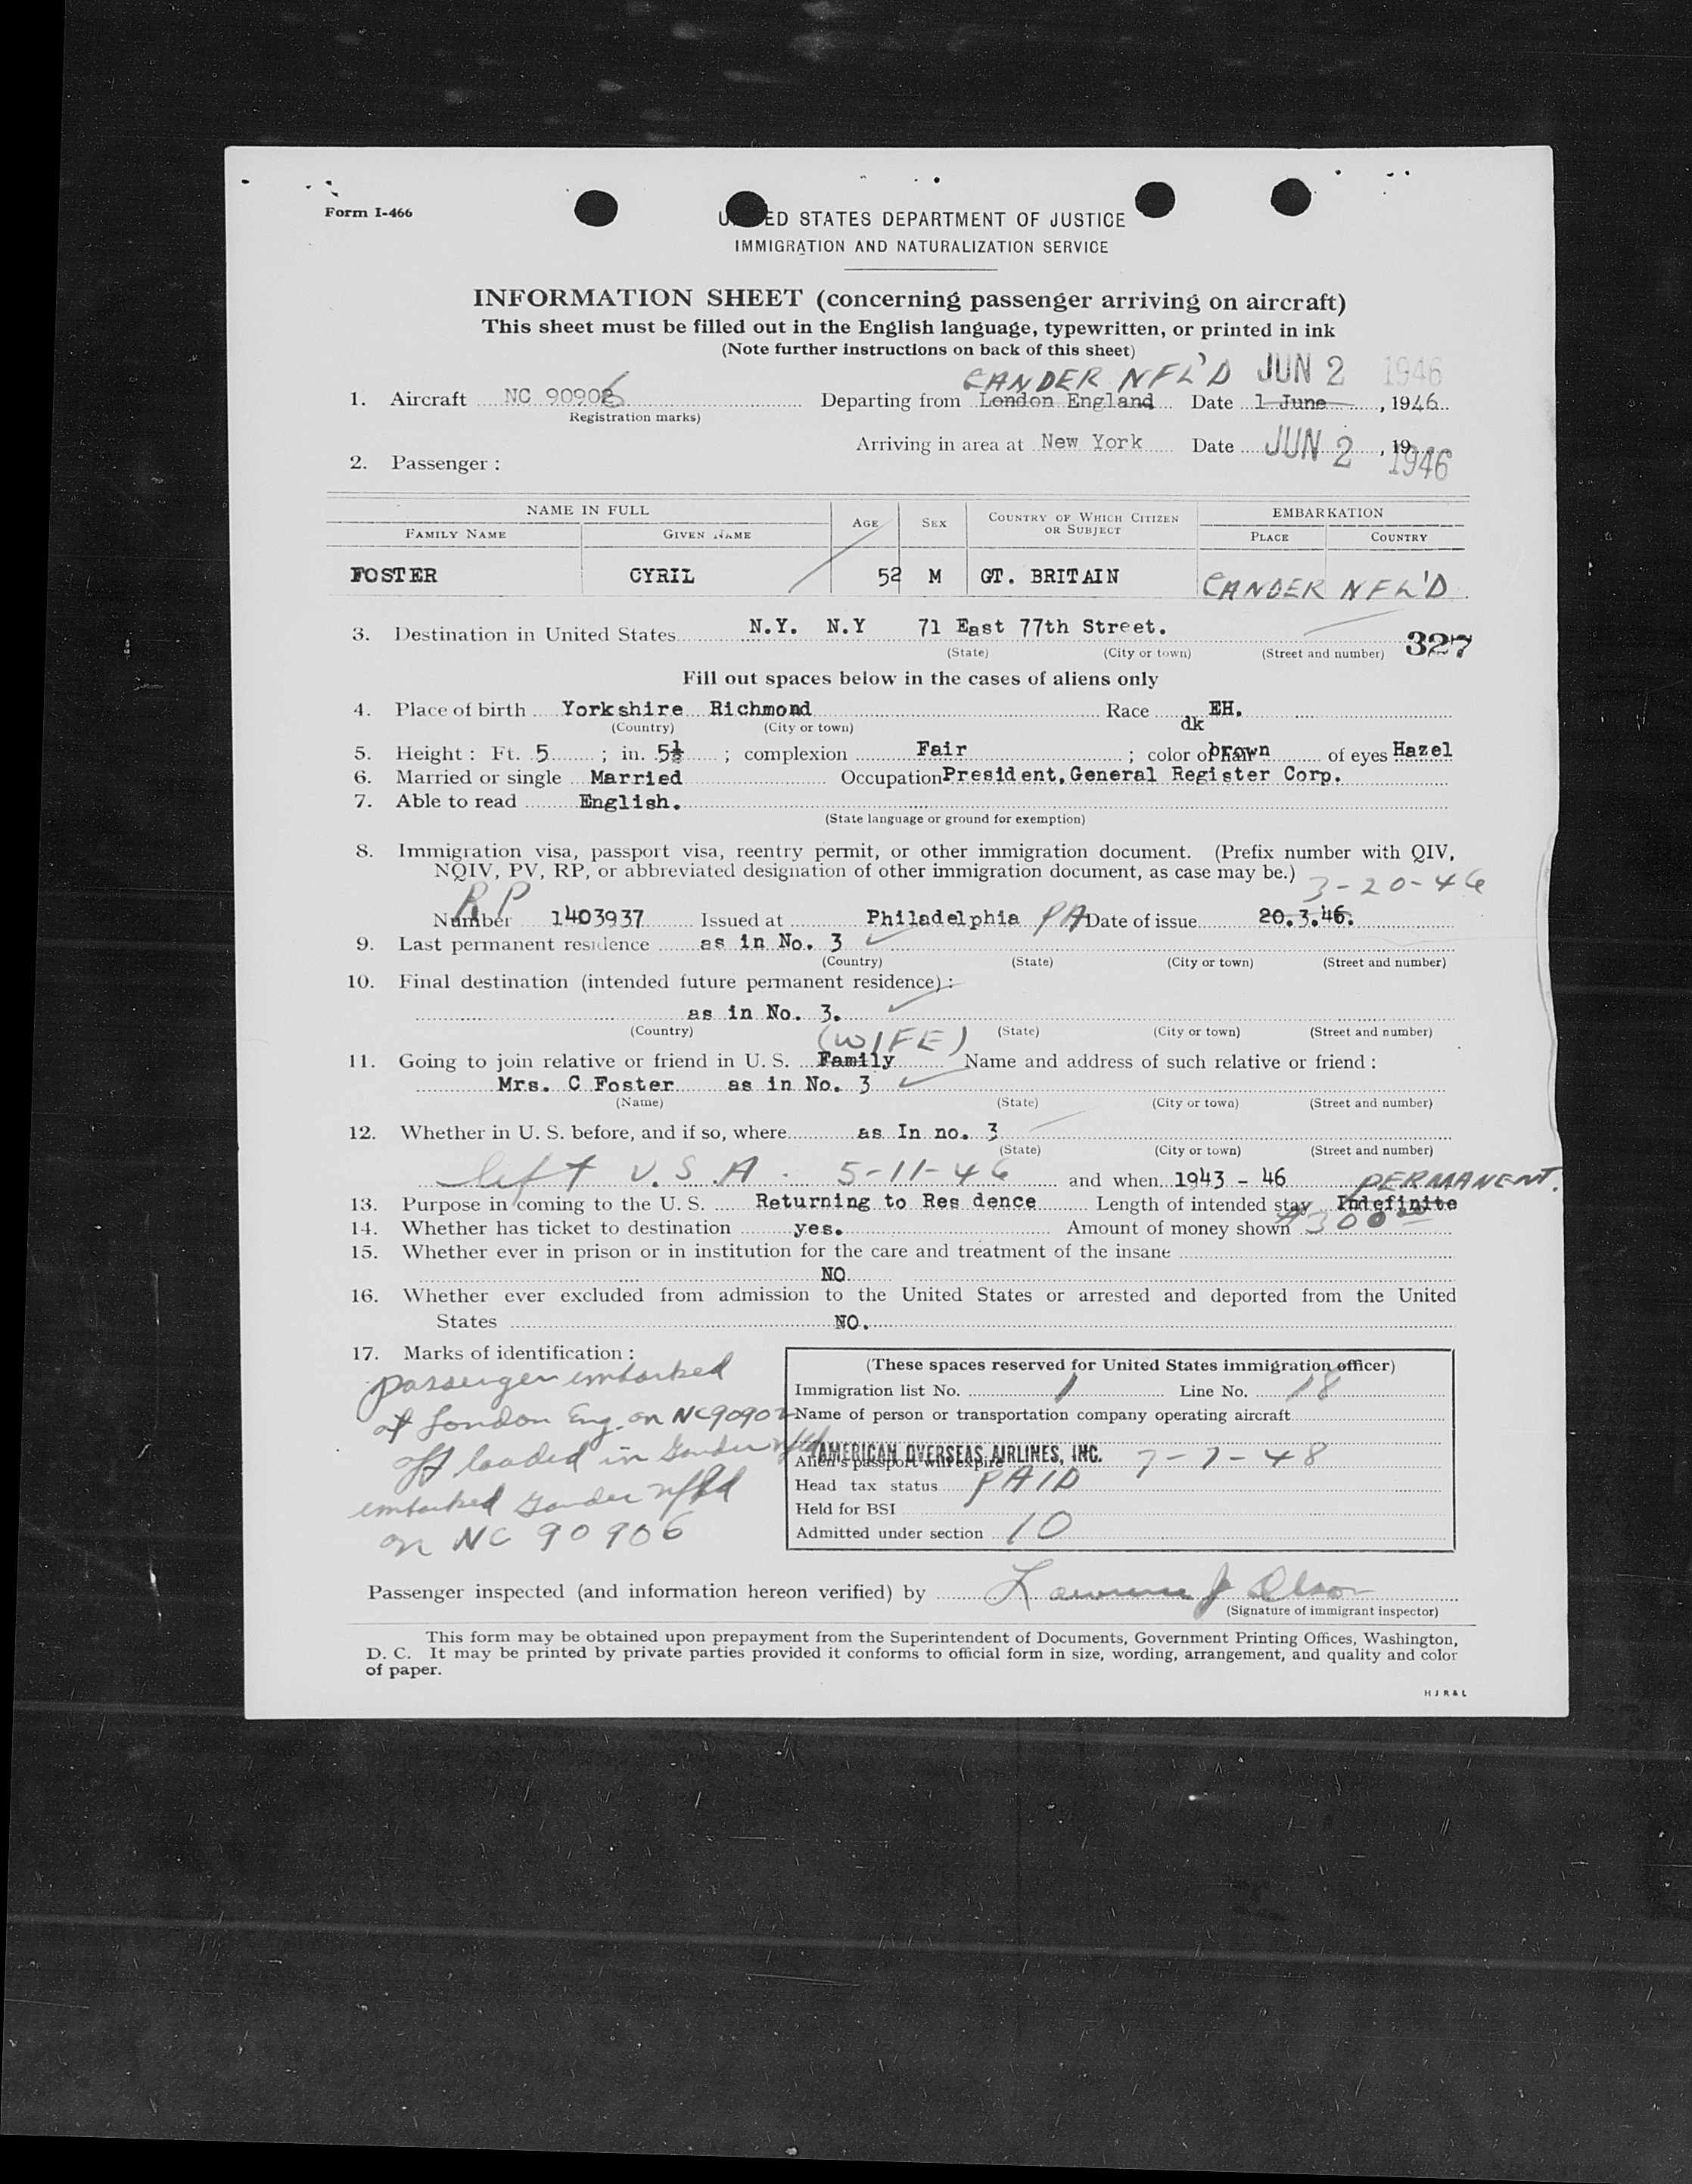 Form I-466
UNITED STATES DEPARTMENT OF JUSTICE
IMMIGRATION AND NATURALIZATION SERVICE
INFORMATION SHEET (concerning passenger arriving on aircraft)
This sheet must be filled out in the English language, typewritten, or printed in ink
(Note further instructions on back of this sheet)
GANDER NFL'D JUN 2 1946
1. Aircraft NC 90906 Departing from London England Date 1 June, 1946
(Registration marks)
Arriving in area at New York Date JUN 2, 19 1946
2. Passenger :
NAME IN FULL AGE SEX COUNTRY OF WHICH CITIZEN OR SUBJECT EMBARKATION
FAMILY NAME GIVEN NAME PLACE COUNTRY
FOSTER CYRIL 52 M GT. BRITAIN GANDER NFL'D
3. Destination in United States N.Y. N.Y 71 East 77th Street. 327
(State) (City or town) (Street and number)
Fill out spaces below in the cases of aliens only
4. Place of birth Yorkshire Richmond Race EH.
(Country) (City or town) dk
5. Height : Ft. 5 ; in. 5½ ; complexion Fair ; color of hair brown of eyes Hazel
6. Married or single Married Occupation President, General Register Corp.
7. Able to read English.
(State language or ground for exemption)
8. Immigration visa, passport visa, reentry permit, or other immigration document. (Prefix number with QIV,
NQIV, PV, RP, or abbreviated designation of other immigration document, as case may be.)
RP 3-20-46
Number 1403937 Issued at Philadelphia PA Date of issue 20.3.46.
9. Last permanent residence as in No. 3
(Country) (State) (City or town) (Street and number)
10. Final destination (intended future permanent residence) :
as in No. 3.
(Country) (State) (City or town) (Street and number)
(WIFE)
11. Going to join relative or friend in U. S. Family Name and address of such relative or friend :
Mrs. C Foster as in No. 3
(Name) (State) (City or town) (Street and number)
12. Whether in U. S. before, and if so, where as In no. 3
(State) (City or town) (Street and number)
left U.S.A. 5-11-46 and when 1943 - 46 PERMANENT.
13. Purpose in coming to the U. S. Returning to Res dence Length of intended stay Indefinite
14. Whether has ticket to destination yes. Amount of money shown $300 00
15. Whether ever in prison or in institution for the care and treatment of the insane
NO
16. Whether ever excluded from admission to the United States or arrested and deported from the United
States NO.
17. Marks of identification :
passenger embarked
at London Eng. on NC90902
off loaded in Gander nfld
embarked Gander nfld
on NC 90906
(These spaces reserved for United States immigration officer)
Immigration list No. 1 Line No. 18
Name of person or transportation company operating aircraft
AMERICAN OVERSEAS AIRLINES, INC.
Alien's passport will expire 7-7-48
Head tax status PAID
Held for BSI
Admitted under section 10
Passenger inspected (and information hereon verified) by Lawrence J Olson
(Signature of immigrant inspector)
This form may be obtained upon prepayment from the Superintendent of Documents, Government Printing Offices, Washington,
D. C. It may be printed by private parties provided it conforms to official form in size, wording, arrangement, and quality and color
of paper.
HJR&L